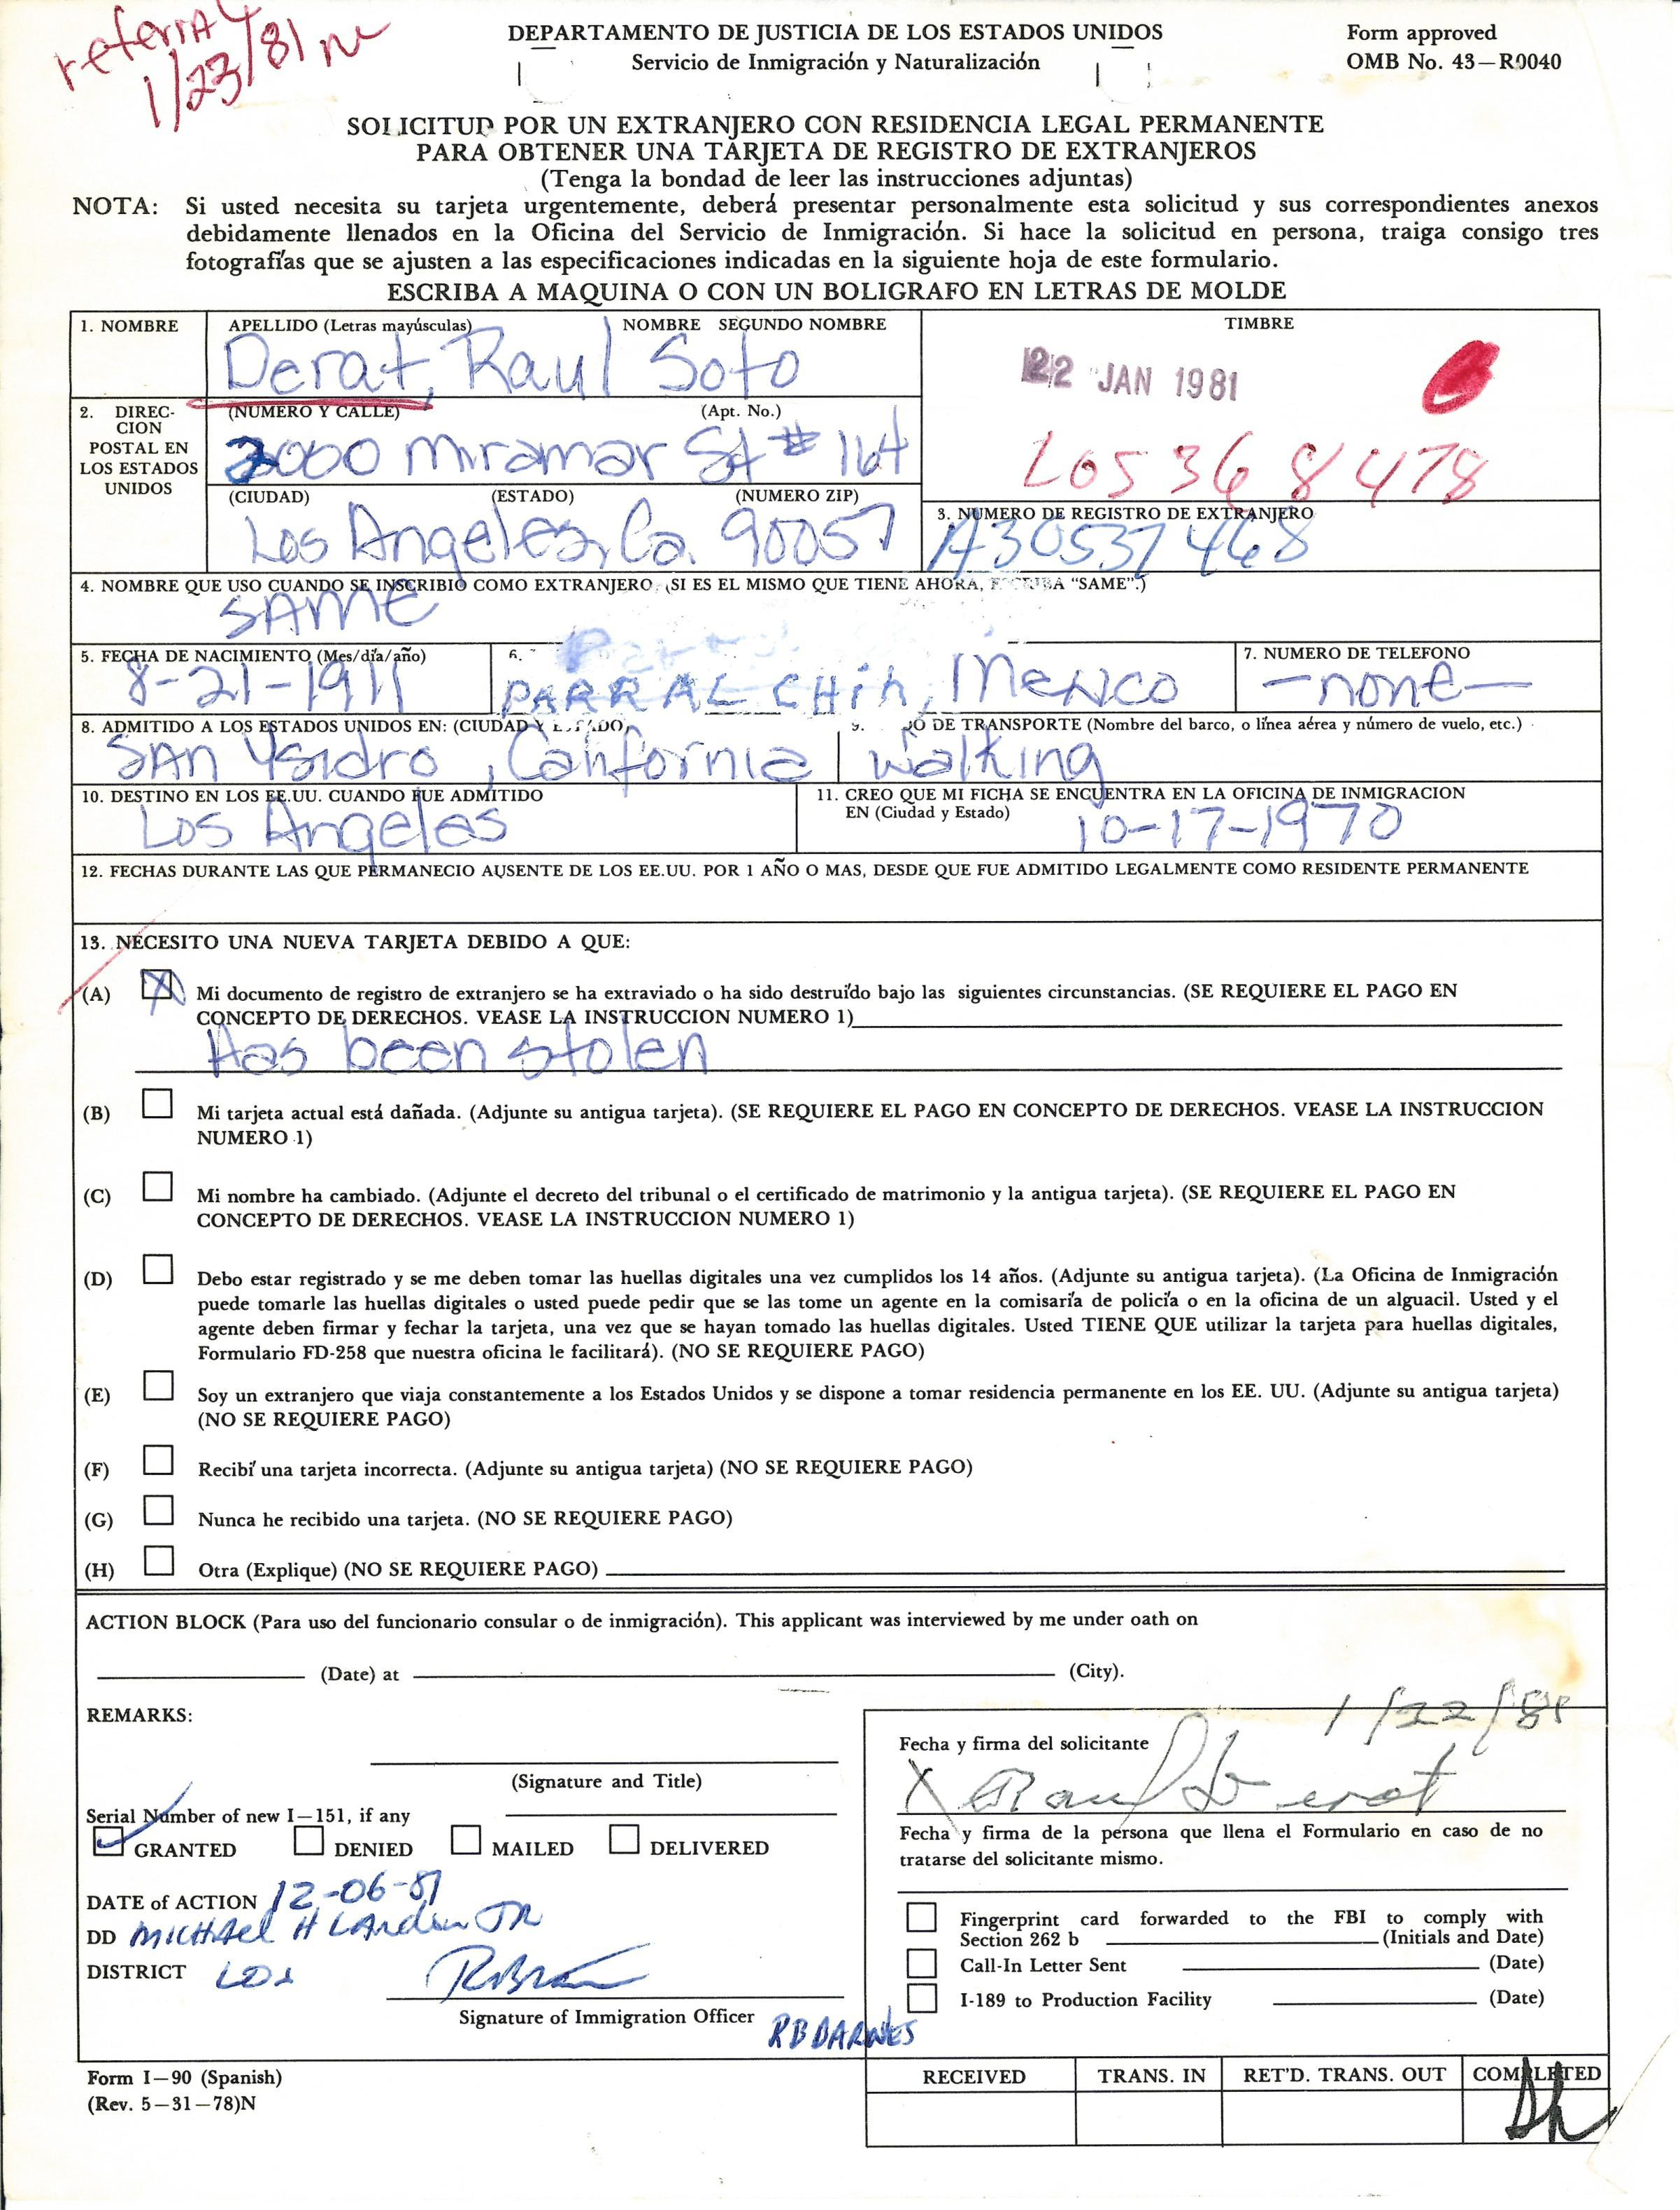 referral
1/23/81
DEPARTAMENTO DE JUSTICIA DE LOS ESTADOS UNIDOS
Servicio de Inmigración y Naturalización
Form approved
OMB No. 43—R0040
SOLICITUD POR UN EXTRANJERO CON RESIDENCIA LEGAL PERMANENTE
PARA OBTENER UNA TARJETA DE REGISTRO DE EXTRANJEROS
(Tenga la bondad de leer las instrucciones adjuntas)
NOTA: Si usted necesita su tarjeta urgentemente, deberá presentar personalmente esta solicitud y sus correspondientes anexos
debidamente llenados en la Oficina del Servicio de Inmigración. Si hace la solicitud en persona, traiga consigo tres
fotografías que se ajusten a las especificaciones indicadas en la siguiente hoja de este formulario.
ESCRIBA A MAQUINA O CON UN BOLIGRAFO EN LETRAS DE MOLDE
1. NOMBRE
APELLIDO (Letras mayúsculas) NOMBRE SEGUNDO NOMBRE
Derat, Raul Soto
TIMBRE
22 JAN 1981
LOS 368478
2. DIREC-
CION
POSTAL EN
LOS ESTADOS
UNIDOS
(NUMERO Y CALLE) (Apt. No.)
2000 Miramar St # 164
(CIUDAD) (ESTADO) (NUMERO ZIP)
Los Angeles, Ca. 90057
3. NUMERO DE REGISTRO DE EXTRANJERO
A30537468
4. NOMBRE QUE USO CUANDO SE INSCRIBIO COMO EXTRANJERO. (SI ES EL MISMO QUE TIENE AHORA, ESCRIBA “SAME”.)
SAME
5. FECHA DE NACIMIENTO (Mes/día/año)
8-21-1911
6.
PARRAL CHih, Mexico
7. NUMERO DE TELEFONO
—none—
8. ADMITIDO A LOS ESTADOS UNIDOS EN: (CIUDAD Y ESTADO)
SAn Ysidro, California
9. DE TRANSPORTE (Nombre del barco, o línea aérea y número de vuelo, etc.)
Walking
10. DESTINO EN LOS EE.UU. CUANDO FUE ADMITIDO
Los Angeles
11. CREO QUE MI FICHA SE ENCUENTRA EN LA OFICINA DE INMIGRACION
EN (Ciudad y Estado)
10-17-1970
12. FECHAS DURANTE LAS QUE PERMANECIO AUSENTE DE LOS EE.UU. POR 1 AÑO O MAS, DESDE QUE FUE ADMITIDO LEGALMENTE COMO RESIDENTE PERMANENTE
13. NECESITO UNA NUEVA TARJETA DEBIDO A QUE:
(A) X Mi documento de registro de extranjero se ha extraviado o ha sido destruído bajo las siguientes circunstancias. (SE REQUIERE EL PAGO EN
CONCEPTO DE DERECHOS. VEASE LA INSTRUCCION NUMERO 1)
Has been stolen
(B) Mi tarjeta actual está dañada. (Adjunte su antigua tarjeta). (SE REQUIERE EL PAGO EN CONCEPTO DE DERECHOS. VEASE LA INSTRUCCION
NUMERO 1)
(C) Mi nombre ha cambiado. (Adjunte el decreto del tribunal o el certificado de matrimonio y la antigua tarjeta). (SE REQUIERE EL PAGO EN
CONCEPTO DE DERECHOS. VEASE LA INSTRUCCION NUMERO 1)
(D) Debo estar registrado y se me deben tomar las huellas digitales una vez cumplidos los 14 años. (Adjunte su antigua tarjeta). (La Oficina de Inmigración
puede tomarle las huellas digitales o usted puede pedir que se las tome un agente en la comisaría de policía o en la oficina de un alguacil. Usted y el
agente deben firmar y fechar la tarjeta, una vez que se hayan tomado las huellas digitales. Usted TIENE QUE utilizar la tarjeta para huellas digitales,
Formulario FD-258 que nuestra oficina le facilitará). (NO SE REQUIERE PAGO)
(E) Soy un extranjero que viaja constantemente a los Estados Unidos y se dispone a tomar residencia permanente en los EE. UU. (Adjunte su antigua tarjeta)
(NO SE REQUIERE PAGO)
(F) Recibí una tarjeta incorrecta. (Adjunte su antigua tarjeta) (NO SE REQUIERE PAGO)
(G) Nunca he recibido una tarjeta. (NO SE REQUIERE PAGO)
(H) Otra (Explique) (NO SE REQUIERE PAGO)
ACTION BLOCK (Para uso del funcionario consular o de inmigración). This applicant was interviewed by me under oath on
(Date) at (City).
REMARKS:
(Signature and Title)
Serial Number of new I—151, if any
GRANTED DENIED MAILED DELIVERED
DATE of ACTION 12-06-81
DD MICHAel H LAnden JR
DISTRICT LOS
Signature of Immigration Officer
RB BARNES
1/22/81
Fecha y firma del solicitante
X Raul Derat
Fecha y firma de la persona que llena el Formulario en caso de no
tratarse del solicitante mismo.
Fingerprint card forwarded to the FBI to comply with
Section 262 b (Initials and Date)
Call-In Letter Sent (Date)
I-189 to Production Facility (Date)
Form I—90 (Spanish)
(Rev. 5—31—78)N
RECEIVED TRANS. IN RET'D. TRANS. OUT COMPLETED